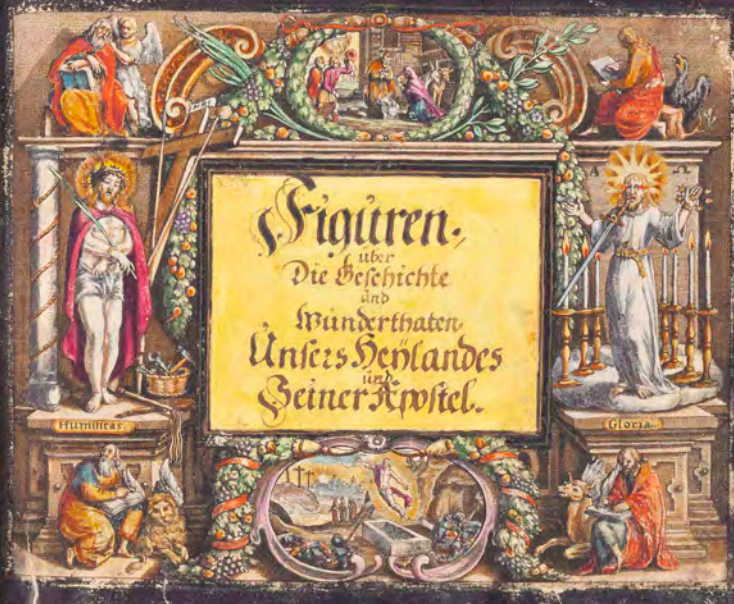 INRI
A Ω
Figúren,
über
Die Geschichte
únd
Wúnderthaten
Únsers Heÿlandes
únd
Seiner Apostel.
Humilitas.
Gloria.